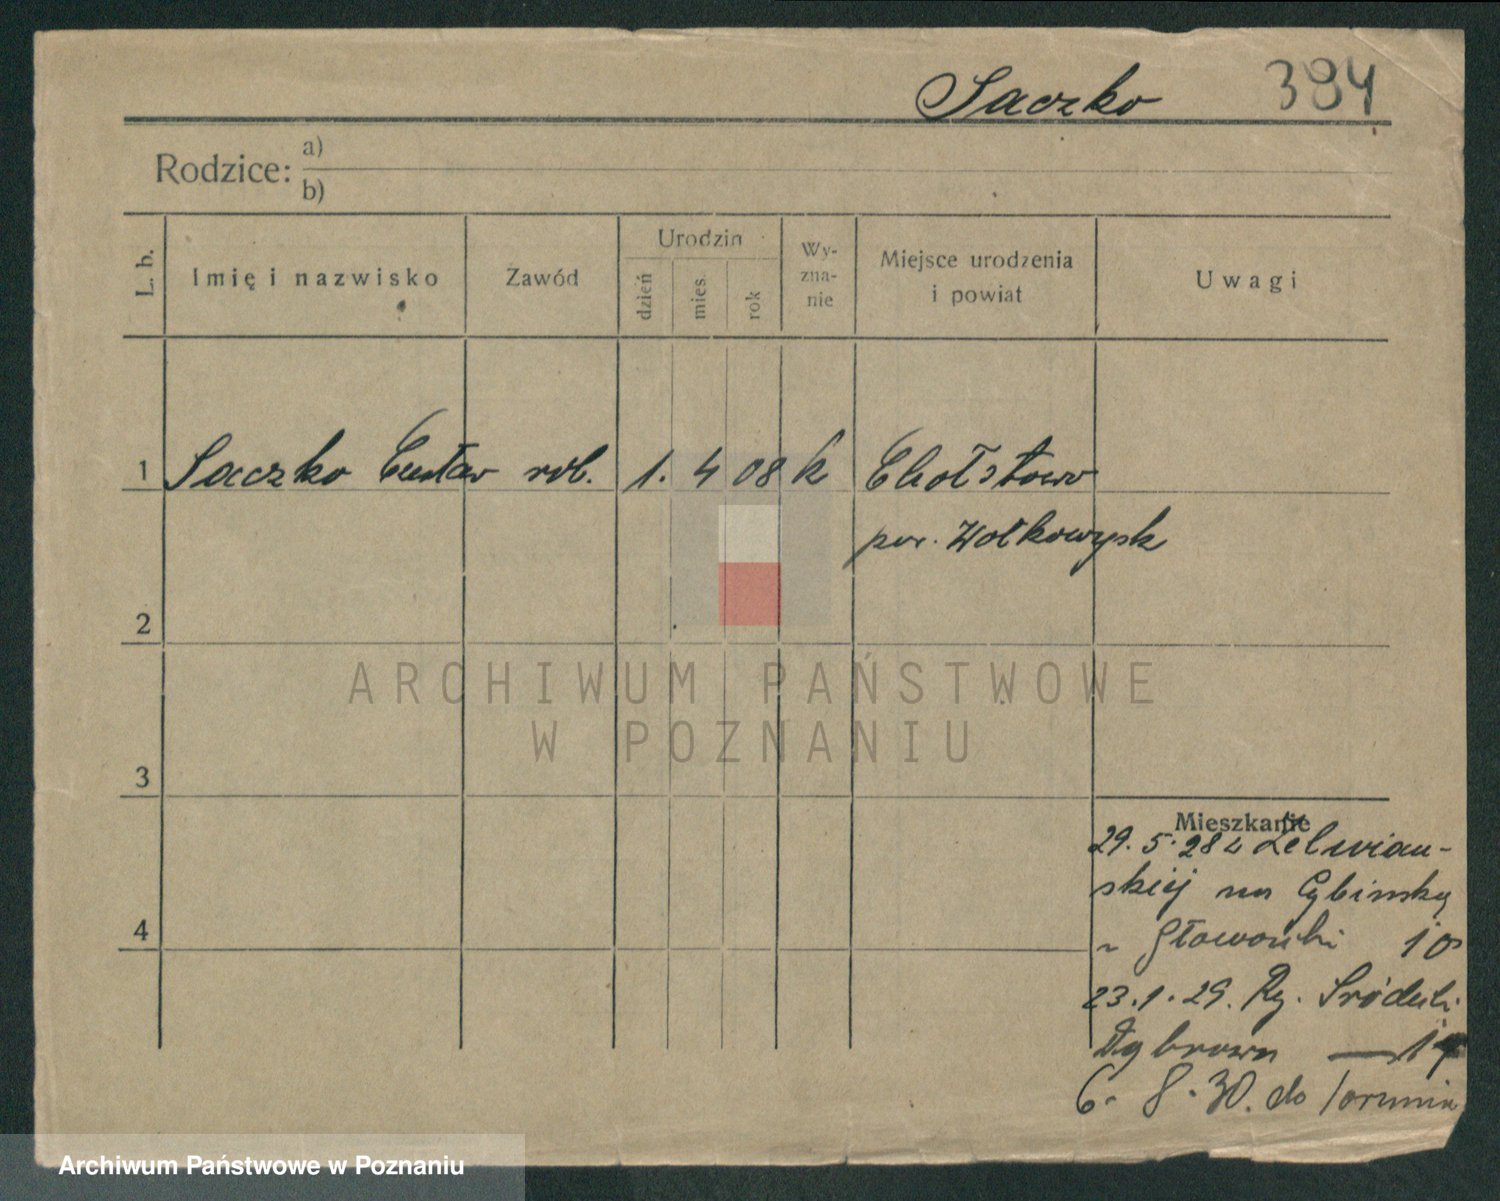 Saczko 394
Rodzice: a)
b)
L. b.
Imię i nazwisko
Zawód
Urodzin
dzień
mies.
rok
Wy-
zna-
nie
Miejsce urodzenia
i powiat
Uwagi
1 Saczko Gustaw rob. 1. 4 08 k Chołstowo
pow. Wołkowysk
2
ARCHIWUM PAŃSTWOWE
W POZNANIU
3
Mieszkanie
29. 5. 28 z Zelwiań-
skiej na Cybińską
10
23. 1. 29. Ry. Śródecki
Dąbrowa — 17
4
6. 8. 30. do Torunia
Archiwum Państwowe w Poznaniu